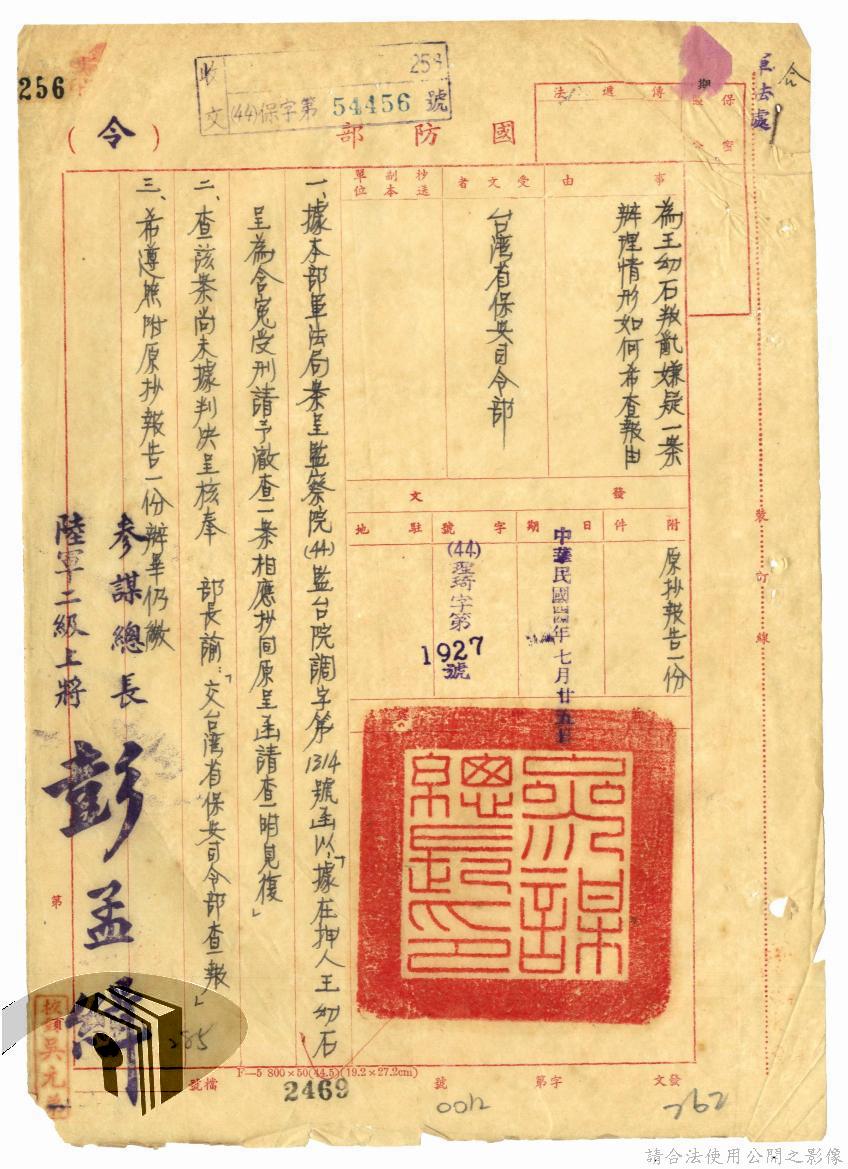 256
收文
258
(44)保字第 54456 號
軍法處
令
國防部
(令)
保密
期
傳遞法
事由
為王幼石叛亂嫌疑一案
辦理情形如何希查報由
受文者
台湾省保安司令部
抄送副本單位
發文
附件
原抄報告一份
日期
中華民國四四年七月廿五日
字號
(44)理琦字第
1927
號
駐地
一、據本部軍法局案呈監察院(44)監台院調字第1314號函以「據在押人王幼石
呈為含冤受刑請予澈查一案相應抄同原呈函請查明見復」
二、查該案尚未據判決呈核奉 部長諭:「交台湾省保安司令部查報」
三、希遵照附原抄報告一份辦畢仍繳
參謀總長
陸軍二級上將
彭孟緝
參謀總長印
裝訂線
第
285
校對吳元
檔號
F—5 800×50(44.5)(19.2×27.2cm)
2469
發文 字第 號
0012
262
請合法使用公開之影像